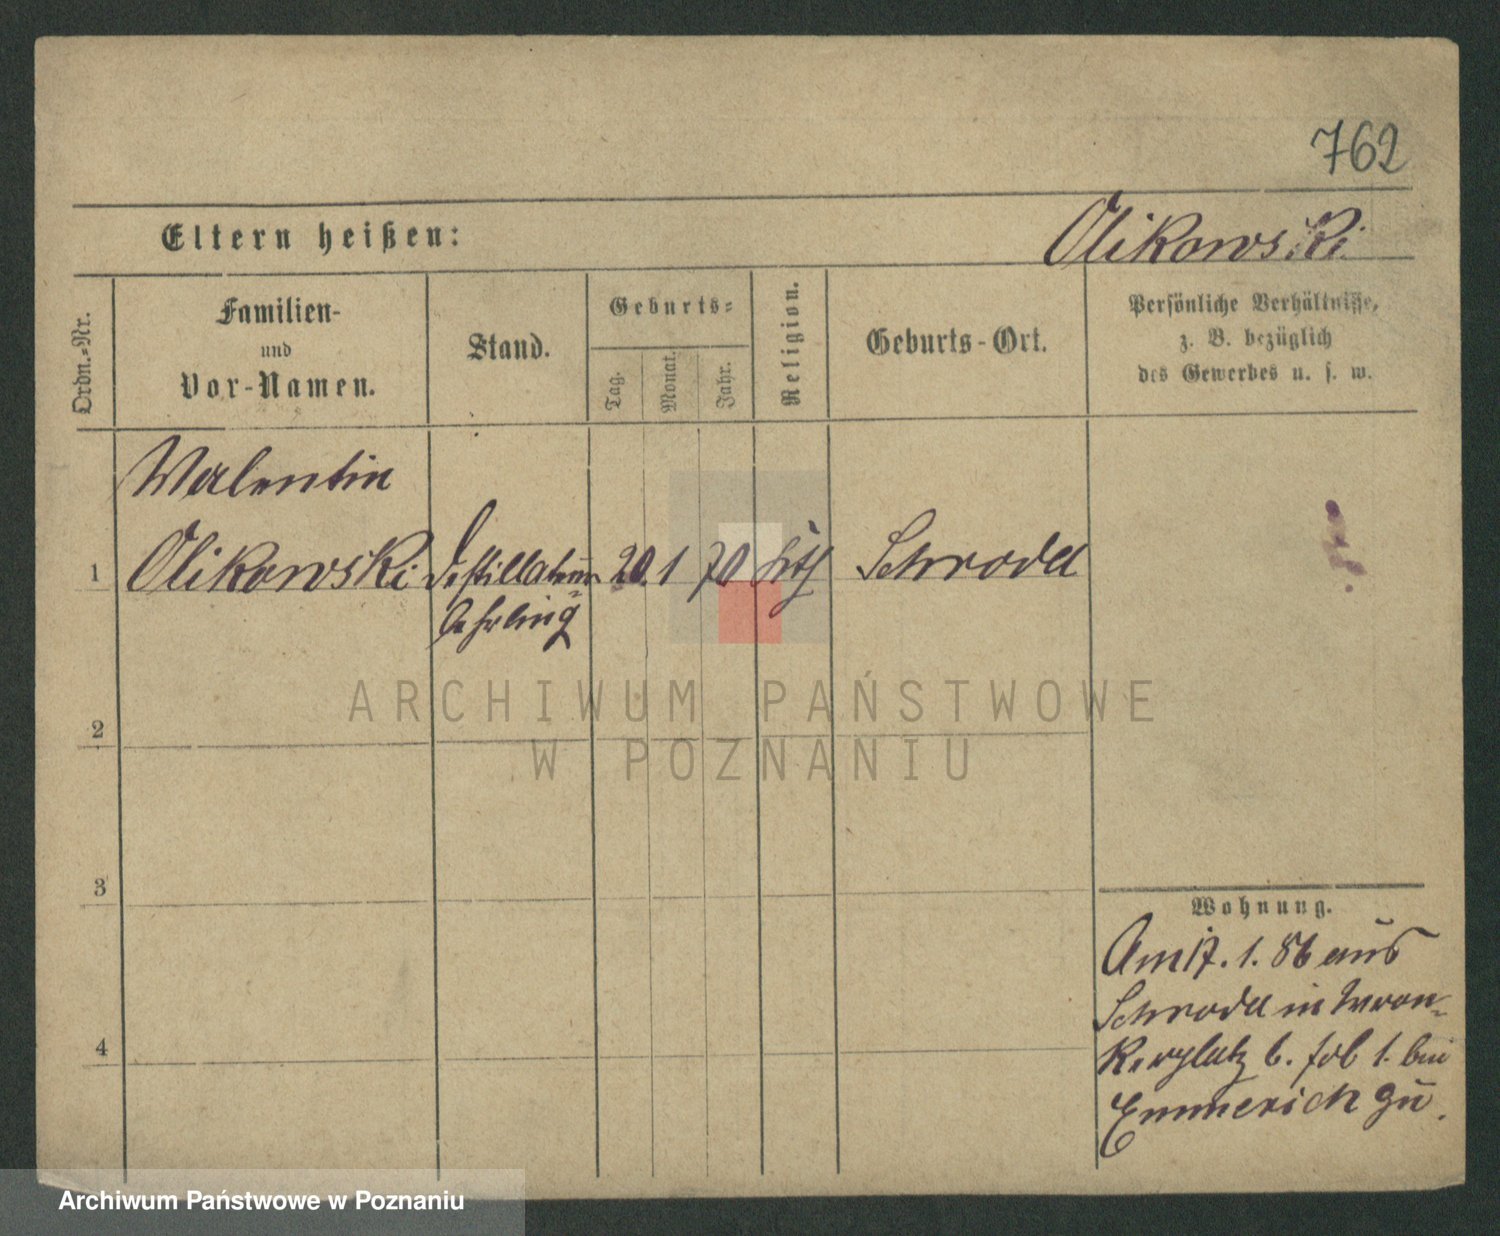 762
Eltern heißen:
Olikowski
Ordn.=Nr.
Familien-
und
Vor-Namen.
Stand.
Geburts=
Tag.
Monat.
Jahr.
Religion.
Geburts-Ort.
Persönliche Verhältnisse,
z. B. bezüglich
des Gewerbes u. s. w.
Walentin
1 Olikowski Destillateur 20. 1 70 kth Schroda
Lehrling
ARCHIWUM PAŃSTWOWE
W POZNANIU
2
3
4
Wohnung.
Am 17. 1. 86 aus
Schroda in Wron-
kerplatz 6. bei
Emmerich zu.
Archiwum Państwowe w Poznaniu